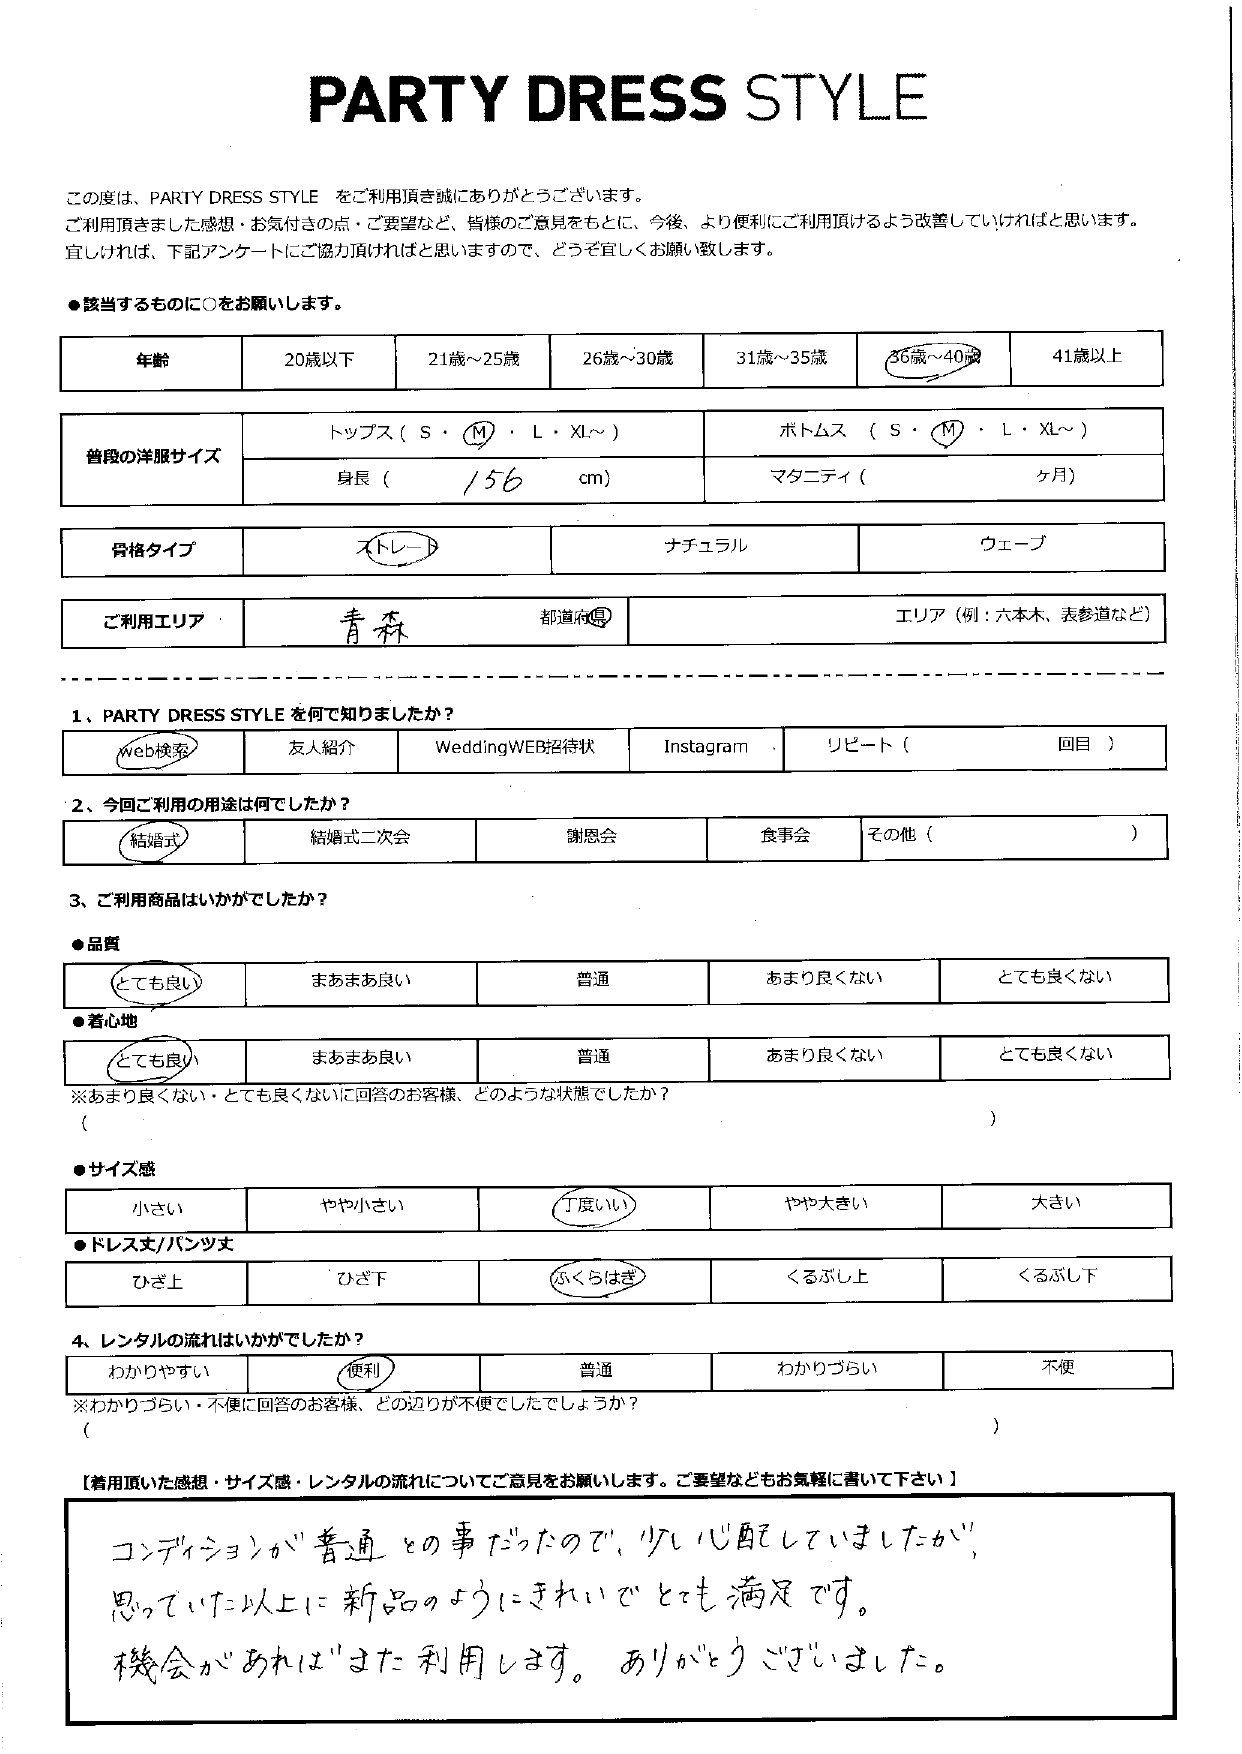 PARTY DRESS STYLE
この度は、PARTY DRESS STYLE をご利用頂き誠にありがとうございます。
ご利用頂きました感想・お気付きの点・ご要望など、皆様のご意見をもとに、今後、より便利にご利用頂けるよう改善していければと思います。
宜しければ、下記アンケートにご協力頂ければと思いますので、どうぞ宜しくお願い致します。
●該当するものに○をお願いします。
年齢 20歳以下 21歳～25歳 26歳～30歳 31歳～35歳 36歳～40歳 41歳以上
普段の洋服サイズ
トップス ( S ・ M ・ L ・ XL～ ) ボトムス ( S ・ M ・ L ・ XL～ )
身長 ( 156 cm) マタニティ ( ヶ月)
骨格タイプ ストレート ナチュラル ウェーブ
ご利用エリア 青森 都道府県 エリア (例：六本木、表参道など)
1、PARTY DRESS STYLE を何で知りましたか？
web検索 友人紹介 WeddingWEB招待状 Instagram リピート ( 回目 )
2、今回ご利用の用途は何でしたか？
結婚式 結婚式二次会 謝恩会 食事会 その他 ( )
3、ご利用商品はいかがでしたか？
●品質
とても良い まあまあ良い 普通 あまり良くない とても良くない
●着心地
とても良い まあまあ良い 普通 あまり良くない とても良くない
※あまり良くない・とても良くないに回答のお客様、どのような状態でしたか？
( )
●サイズ感
小さい やや小さい 丁度いい やや大きい 大きい
●ドレス丈/パンツ丈
ひざ上 ひざ下 ふくらはぎ くるぶし上 くるぶし下
4、レンタルの流れはいかがでしたか？
わかりやすい 便利 普通 わかりづらい 不便
※わかりづらい・不便に回答のお客様、どの辺りが不便でしたでしょうか？
( )
【着用頂いた感想・サイズ感・レンタルの流れについてご意見をお願いします。ご要望などもお気軽に書いて下さい 】
コンディションが普通との事だったので、少し心配していましたが、
思っていた以上に新品のようにきれいでとても満足です。
機会があればまた利用します。ありがとうございました。